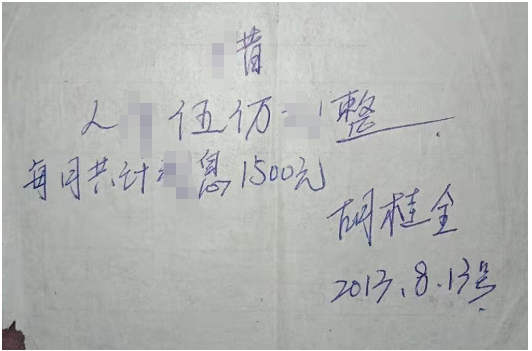 昔
人伍仿整.
每月共计息1500元
胡桂全
2013.8.13号